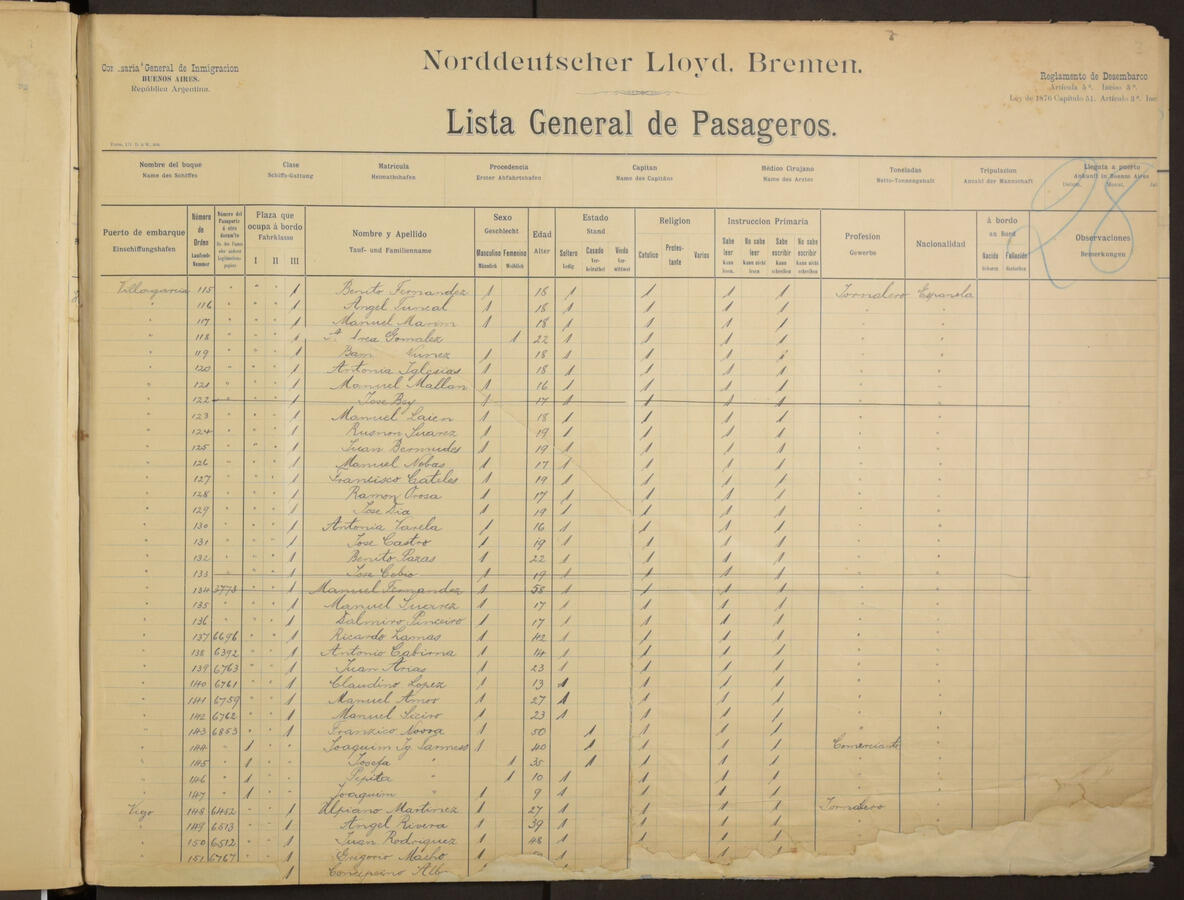 General de Inmigracion
BUENOS AIRES.
República Argentina.
Norddeutscher Lloyd, Bremen.
Reglamento de Desembarco
Articula 5º. Inciso 3º.
Ley de 1876 Capitulo 51. Articulo 3º. Inc
Lista General de Pasageros.
28
Nombre del buque Clase Matricula Procedencia Capitan Médico Cirujano Toneladas Tripulacion Llegata a puerto
Name des Schiffes Schiffs-Gattung Heimathshafen Erster Abfahrtshafen Name des Capitäns Name des Arztes Netto-Tonnengehalt Anzahl der Mannschaft Ankunft in Buenos Aires
Datum, Monat,
Puerto de embarque Número de Orden Plaza que ocupa á bordo Nombre y Apellido Sexo Edad Estado Religion Instruccion Primaria Profesion Nacionalidad á bordo Observaciones
Einschiffungshafen Laufende Nummer Fahrklasse Tauf- und Familienname Geschlecht Alter Stand Gewerbe an Bord Bemerkungen
I II III Masculino Femenino Soltero Casado Viudo Catolico Protestante Varios Sabe leer No sabe leer Sabe escribir No sabe escribir Nacido Fallacido
Männlich Weiblich Ledig Verheirathet Verwittwet Kann lesen. Kann nicht lesen. Kann schreiben Kann nicht schreiben Geboren Gestorben
Villagarcia 115 " " " 1 Benito Fernandez 1 18 1 1 1 1 Tornalero Española
116 " " " 1 Angel Tuncal 1 18 1 1 1 1 " "
117 " " " 1 Manuel 1 18 1 1 1 1 " "
118 " " " 1 Gomalez 1 22 1 1 1 1 " "
119 " " " 1 Nunez 1 18 1 1 1 1 " "
120 " " " 1 Antonia Iglesias 1 18 1 1 1 1 " "
" 121 " " " 1 Manuel Mallan 1 16 1 1 1 1 " "
" 122 " " 1 Jose Bey 1 17 1 1 1 1 " "
" 123 " " " 1 Manuel Laien 1 18 1 1 1 1 " "
" 124 " " " 1 Suarez 1 19 1 1 1 1 " "
" 125 " " " 1 Juan Bermudes 1 19 1 1 1 1 " "
" 126 " " " 1 Manuel Nobas 1 17 1 1 1 1 " "
" 127 " " " 1 Francisco Cateles 1 19 1 1 1 1 " "
" 128 " " " 1 Ramon Orosa 1 17 1 1 1 1 " "
" 129 " " " 1 Jose Dia 1 19 1 1 1 1 " "
" 130 " " " 1 Antonia Varela 1 16 1 1 1 1 " "
" 131 " " " 1 Jose Castro 1 19 1 1 1 1 " "
" 132 " " " 1 Benito Pazas 1 22 1 1 1 1 " "
" 133 " " 1 Jose Cobio 1 19 1 1 1 1 " "
" 134 3773 " " 1 Manuel Fernandez 1 58 1 1 1 1 " "
" 135 " " " 1 Manuel Suarez 1 17 1 1 1 1 " "
" 136 " " " 1 Dalmiro Pinceiro 1 17 1 1 1 1 " "
" 137 6696 " " 1 Ricardo Lamas 1 42 1 1 1 1 " "
" 138 6392 " " 1 Antonio Cabirna 1 14 1 1 1 1 " "
" 139 6763 " " 1 Juan Arias 1 23 1 1 1 1 " "
" 140 6761 " " 1 Claudino Lopez 1 13 1 1 1 1 " "
" 141 6759 " " 1 Manuel Amor 1 27 1 1 1 1 " "
" 142 6762 " " 1 Manuel Siciro 1 23 1 1 1 1 " "
" 143 6853 " " 1 Franzico Novoa 1 50 1 1 1 1 " "
" 144 " 1 " " Joaquim 1 40 1 1 1 1 Comerciante "
" 145 " 1 " " Josefa " 1 35 1 1 1 1 "
" 146 " 1 " " Pepita " 1 10 1 1 1 1 "
" 147 " 1 " " Joaquim " 1 9 1 1 1 1 "
Vigo 148 6452 " " 1 Ulpiano Martinez 1 27 1 1 1 1 Tornalero "
" 149 6513 " " 1 Angel Rivera 1 39 1 1 1 1 "
" 150 6512 " " 1 Juan Rodriguez 1 48 1 1 1 1
151 6767 " " 1 Gregorio Macho 1 1 1 1 1
1 Alb